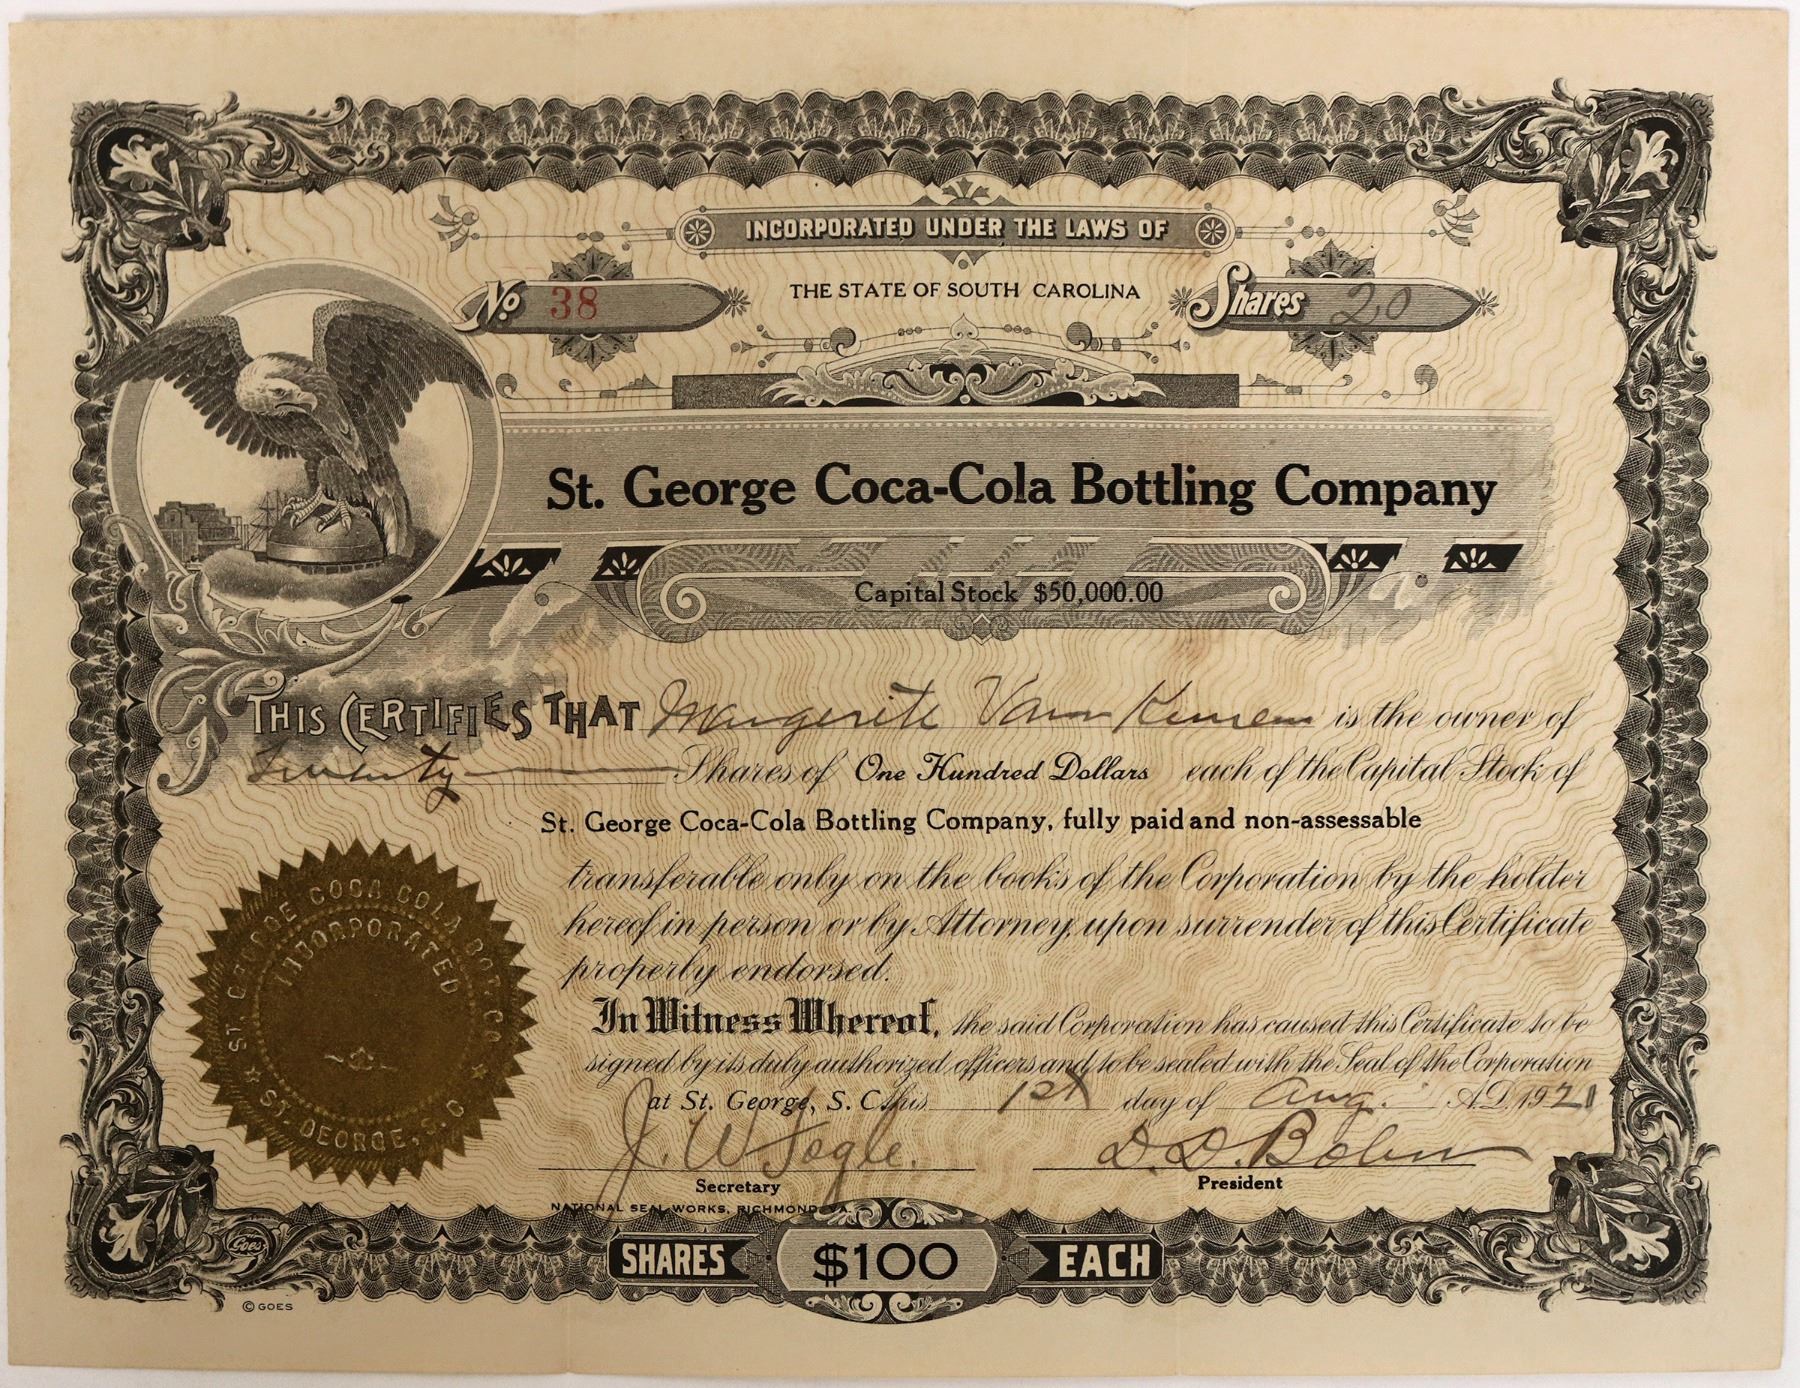 INCORPORATED UNDER THE LAWS OF
THE STATE OF SOUTH CAROLINA
No. 38
Shares 20
St. George Coca-Cola Bottling Company
Capital Stock $50,000.00
THIS CERTIFIES THAT Margerite Van is the owner of
Twenty Shares of One Hundred Dollars each of the Capital Stock of
St. George Coca-Cola Bottling Company, fully paid and non-assessable
transferable only on the books of the Corporation by the holder
hereof in person or by Attorney, upon surrender of this Certificate
properly endorsed.
In Witness Whereof, the said Corporation has caused this Certificate to be
signed by its duly authorized officers and to be sealed with the Seal of the Corporation
at St. George, S. C. this 1st day of Aug. A.D. 1921
J. W. Fogle. D. D. Bolen
Secretary President
NATIONAL SEAL WORKS, RICHMOND, VA.
SHARES $100 EACH
Goes
© GOES
ST. GEORGE COCA COLA BOT. CO
INCORPORATED
ST. GEORGE, S. C